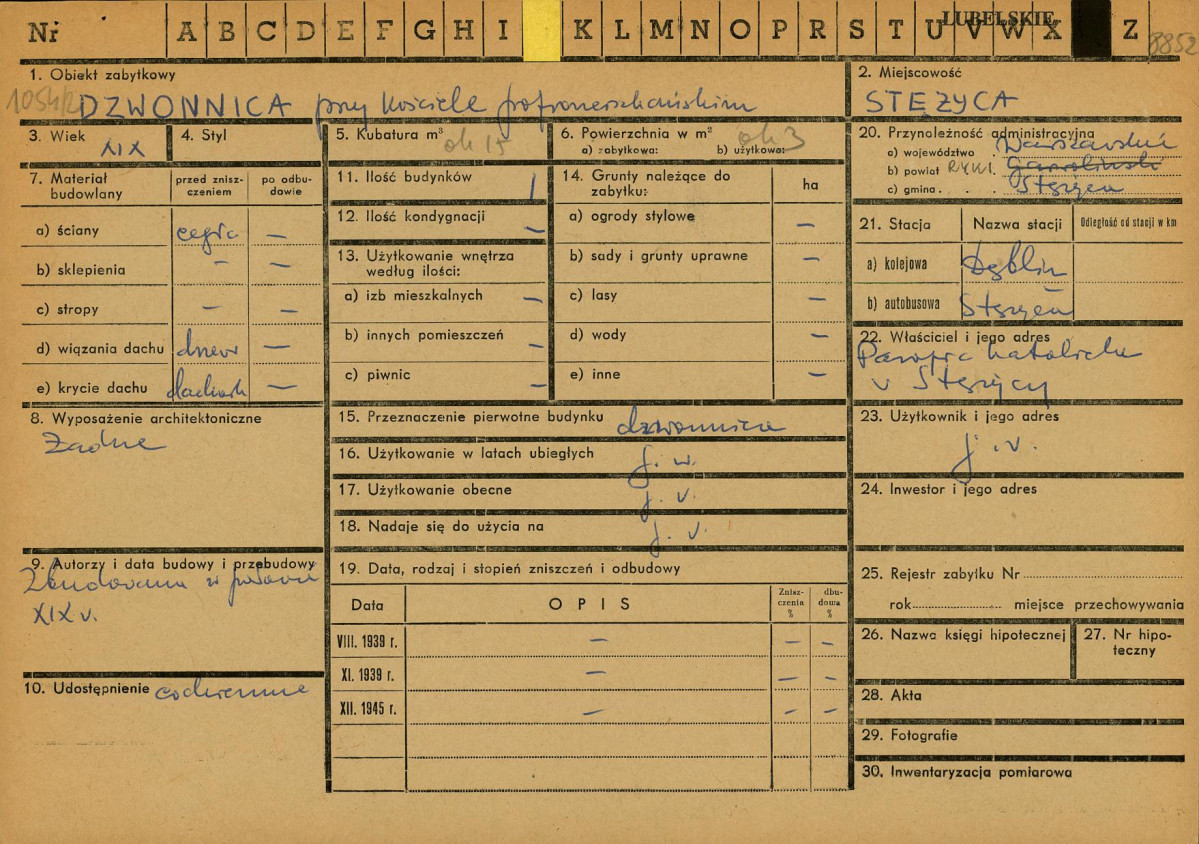 Nr A B C D E F G H I K L M N O P R S T U V W X Z
LUBELSKIE
8852
1. Obiekt zabytkowy
1054/2 DZWONNICA przy kościele pofranciszkańskim
2. Miejscowość
STĘŻYCA
3. Wiek XIX
4. Styl
5. Kubatura m³ ok 15
6. Powierzchnia w m² ok 3
a) zabytkowa: b) użytkowa:
20. Przynależność administracyjna
a) województwo Warszawskie
b) powiat RYKI. Garwoliński
c) gmina . . . Stężyca
7. Materiał budowlany
przed zniszczeniem
po odbudowie
a) ściany cegła —
b) sklepienia — —
c) stropy — —
d) wiązania dachu drewn —
e) krycie dachu dachówk —
11. Ilość budynków 1
12. Ilość kondygnacji —
13. Użytkowanie wnętrza
według ilości:
a) izb mieszkalnych —
b) innych pomieszczeń —
c) piwnic —
14. Grunty należące do
zabytku: ha
a) ogrody stylowe —
b) sady i grunty uprawne —
c) lasy —
d) wody —
e) inne —
21. Stacja Nazwa stacji Odległość od stacji w km
a) kolejowa Dęblin
b) autobusowa Stężyca
22. Właściciel i jego adres
Parafia katolicka
w Stężycy
8. Wyposażenie architektoniczne
Żadne
15. Przeznaczenie pierwotne budynku dzwonnica
16. Użytkowanie w latach ubiegłych j. w.
17. Użytkowanie obecne j. w.
18. Nadaje się do użycia na j. w.
23. Użytkownik i jego adres
j. w.
24. Inwestor i jego adres
9. Autorzy i data budowy i przebudowy
Zbudowana w połowie
XIX w.
10. Udostępnienie codzienne
19. Data, rodzaj i stopień zniszczeń i odbudowy
Data OPIS Zniszczenia % dbudowa %
VIII. 1939 r. — — —
XI. 1939 r. — — —
XII. 1945 r. — — —
25. Rejestr zabytku Nr
rok miejsce przechowywania
26. Nazwa księgi hipotecznej
27. Nr hipoteczny
28. Akta
29. Fotografie
30. Inwentaryzacja pomiarowa